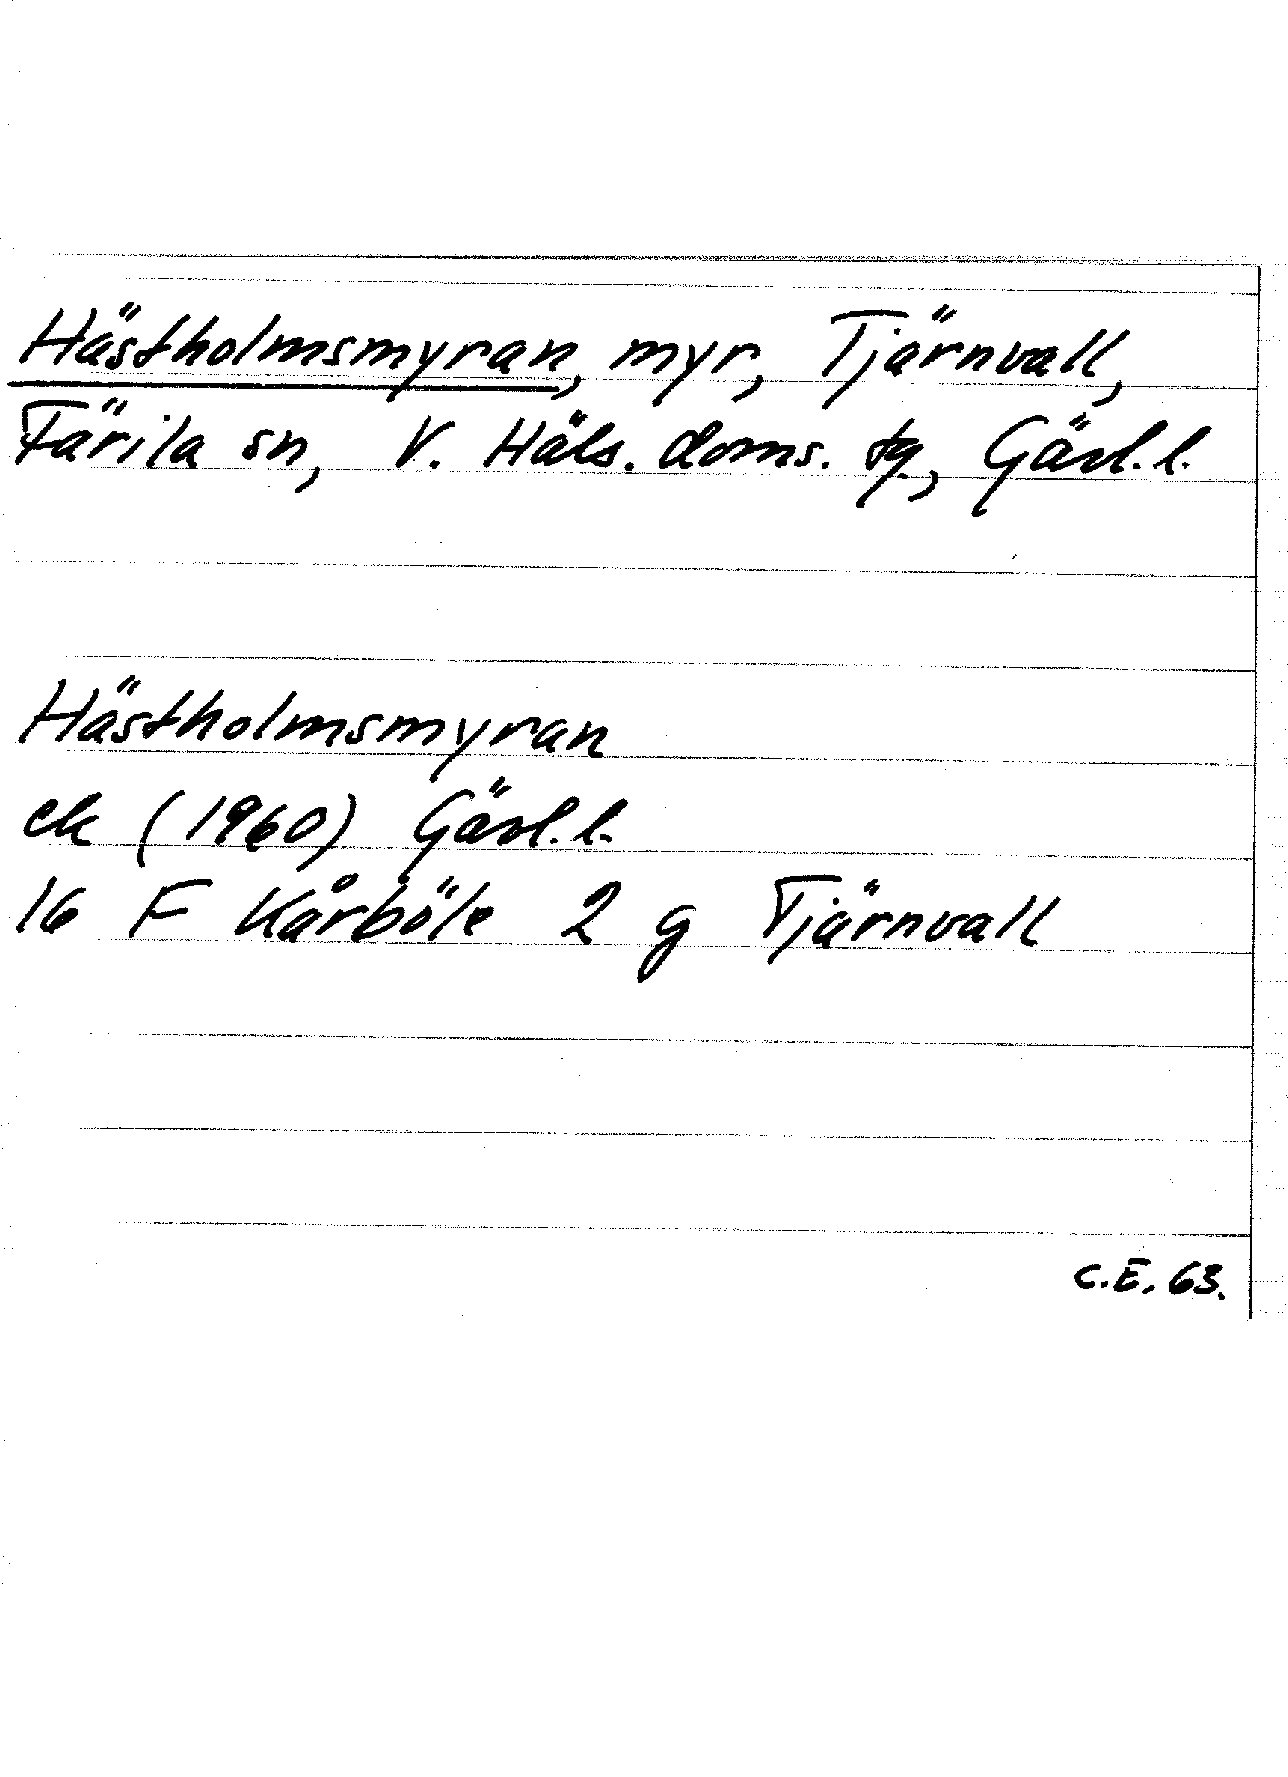 Hästholmsmyran, myr, Tjärnvall,
Färila sn, V. Häls. doms. tg, Gävl. l.
Hästholmsmyran
ek (1960) Gävl. l.
16 F Kårböle 2 g Tjärnvall
C.E. 63.